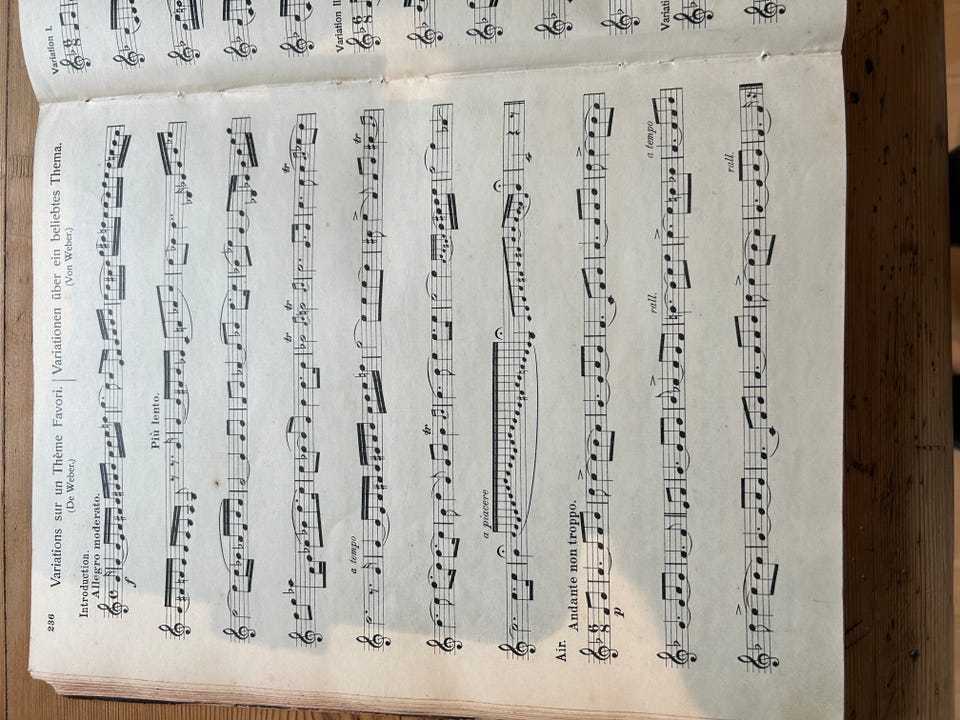 236
Variations sur un Thème Favori. | Variationen über ein beliebtes Thema.
(De Weber.) (Von Weber.)
Introduction.
Allegro moderato.
f
Più lento.
tr tr tr
a tempo tr
tr
a piacere
Air. Andante non troppo.
6 8
p
rall. a tempo
rall.
Variation I.
6 8
Variation II
6 8
Variati